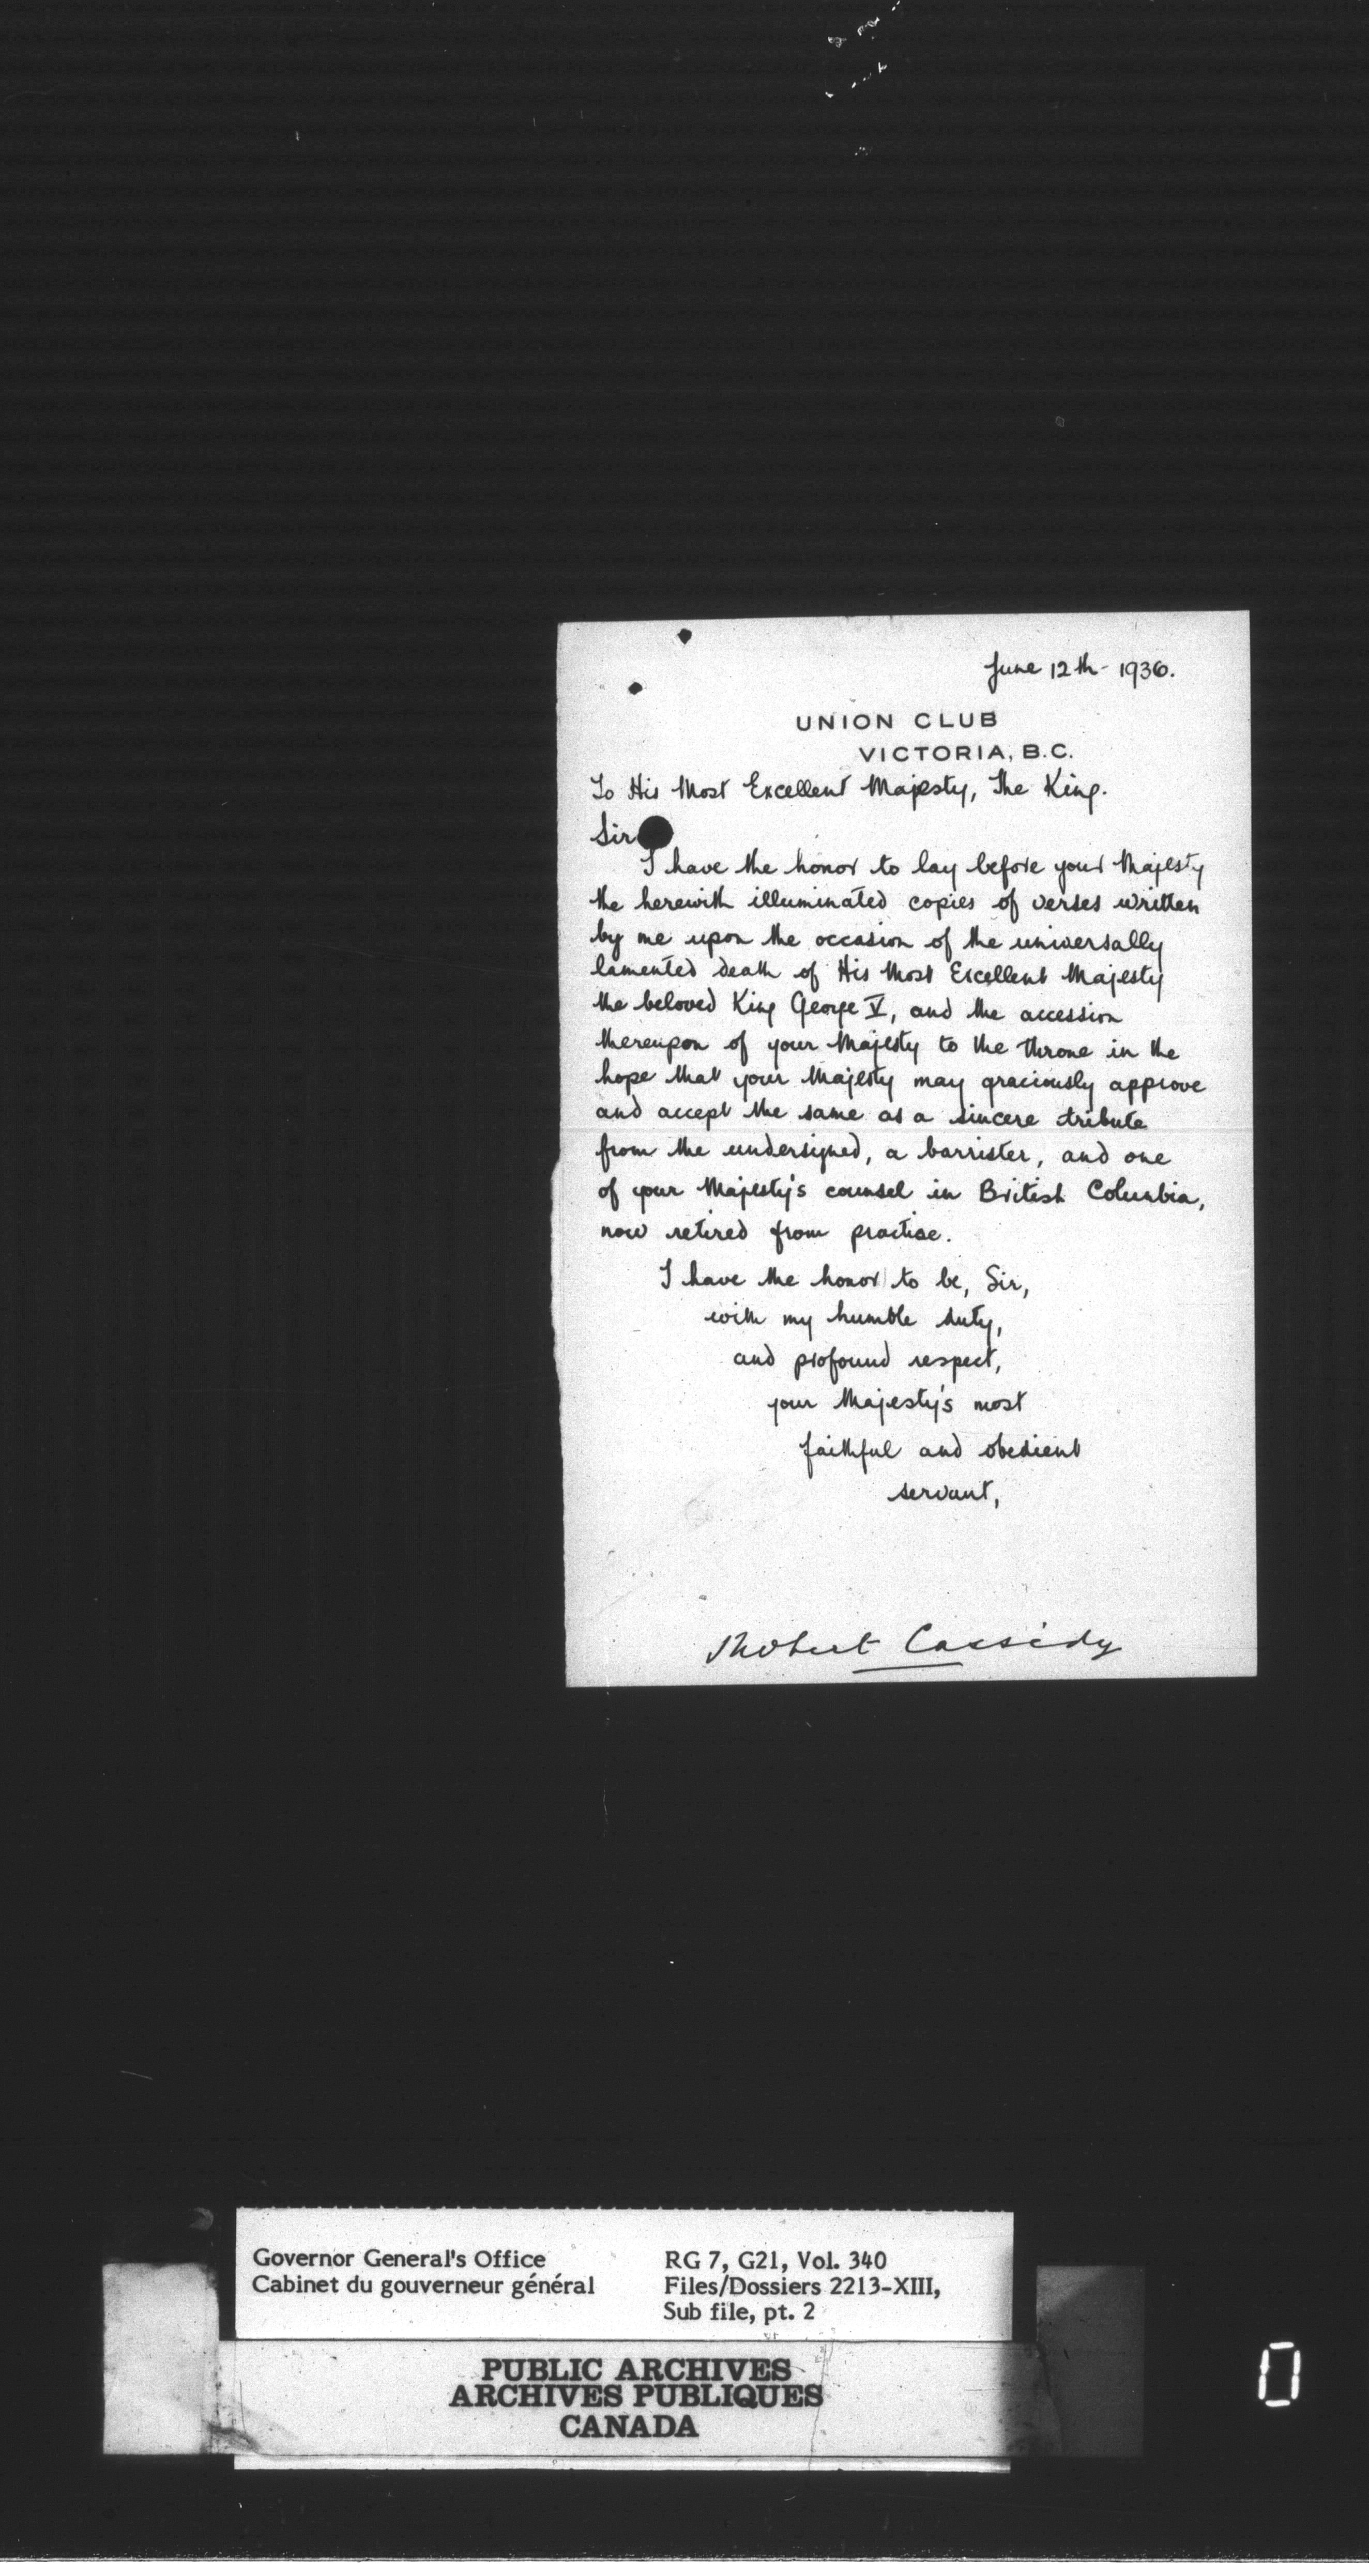 June 12th - 1936.
UNION CLUB
VICTORIA, B.C.
To His Most Excellent Majesty, The King.
Sir
I have the honor to lay before your Majesty
the herewith illuminated copies of verses written
by me upon the occasion of the universally
lamented death of His Most Excellent Majesty
the beloved King George V, and the accession
thereupon of your Majesty to the throne in the
hope that your Majesty may graciously approve
and accept the same as a sincere tribute
from the undersigned, a barrister, and one
of your Majesty's counsel in British Columbia,
now retired from practise.
I have the honor to be, Sir,
with my humble duty,
and profound respect,
your Majesty's most
faithful and obedient
servant,
Robert Cassidy
Governor General's Office
Cabinet du gouverneur général
RG 7, G21, Vol. 340
Files/Dossiers 2213-XIII,
Sub file, pt. 2
PUBLIC ARCHIVES
ARCHIVES PUBLIQUES
CANADA
0